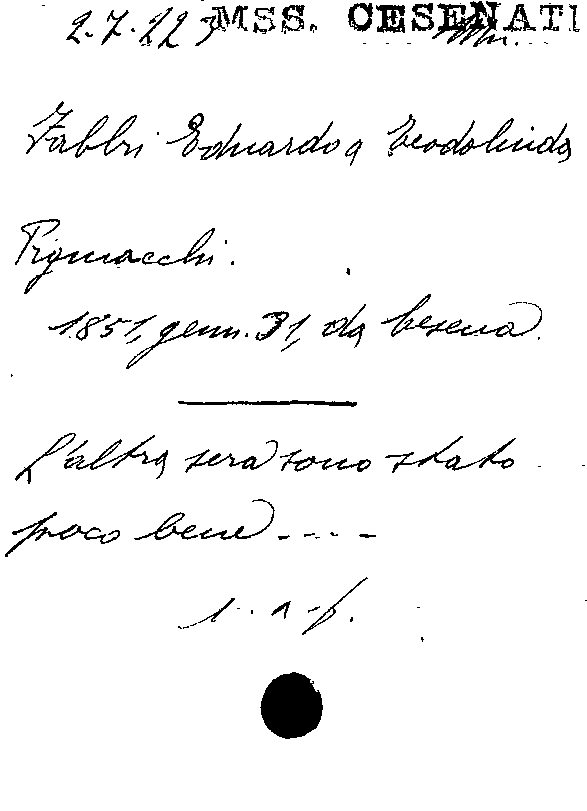 2.7.223 MSS. CESENATI
Fabbri Eduardo a Teodolinda
Pignacchi.
1851, genn. 31, da Cesena.
L'altra sera sono stato
poco bene ----
1. a-f.